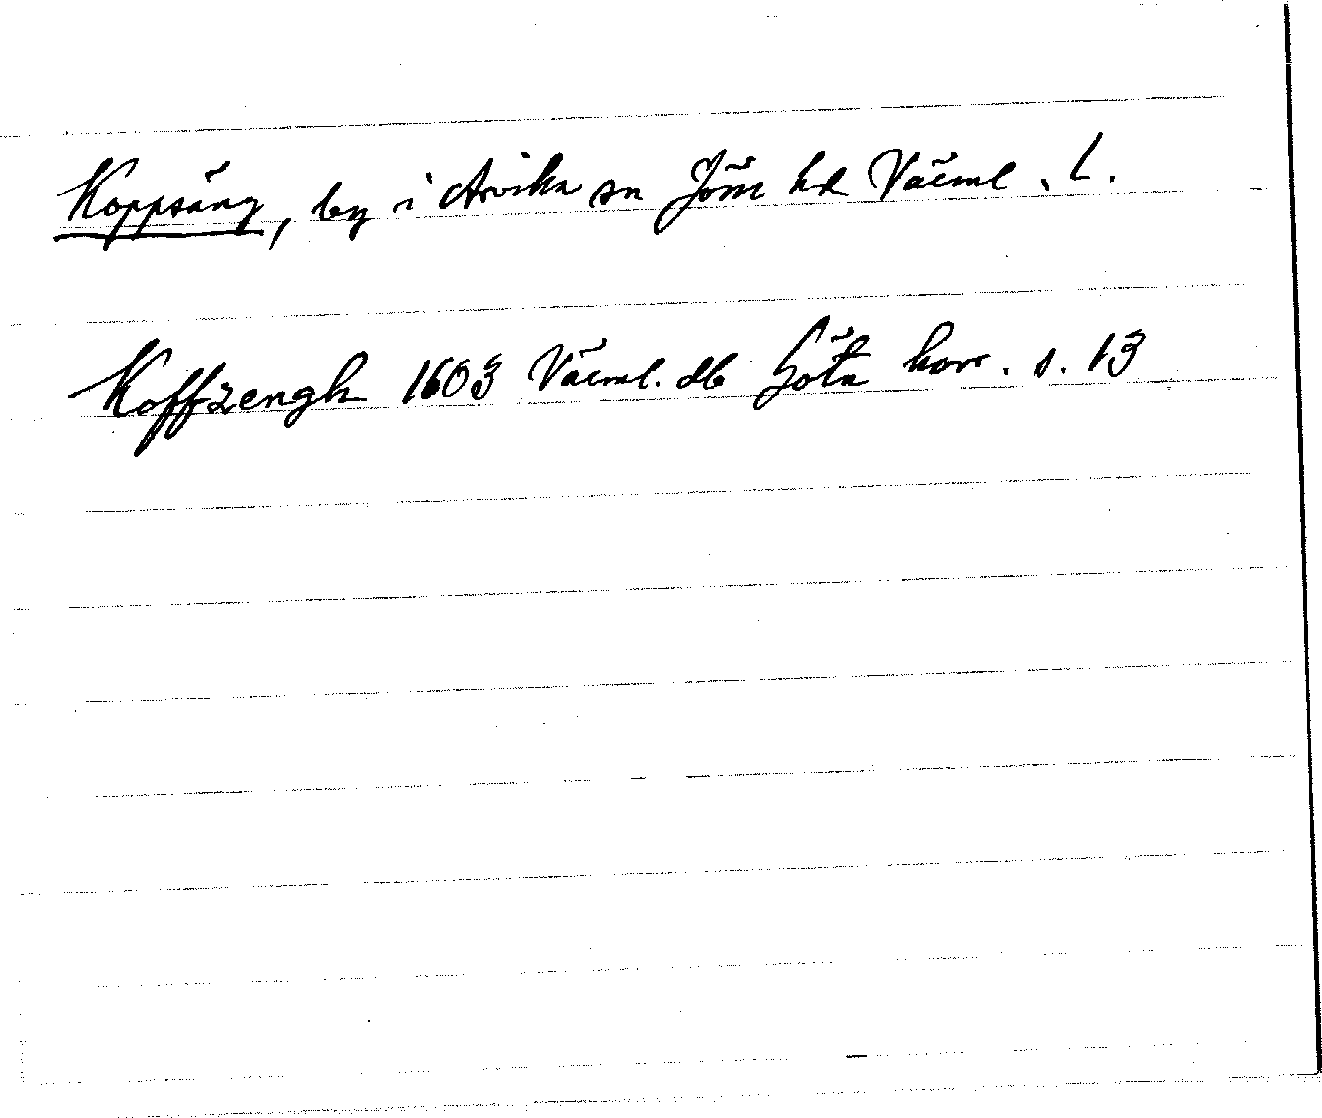 Koppsäng, by i Arvika sn Jösse hd Värml. L.
Koffzengh 1603 Värml. db Göta hovr. s. 13